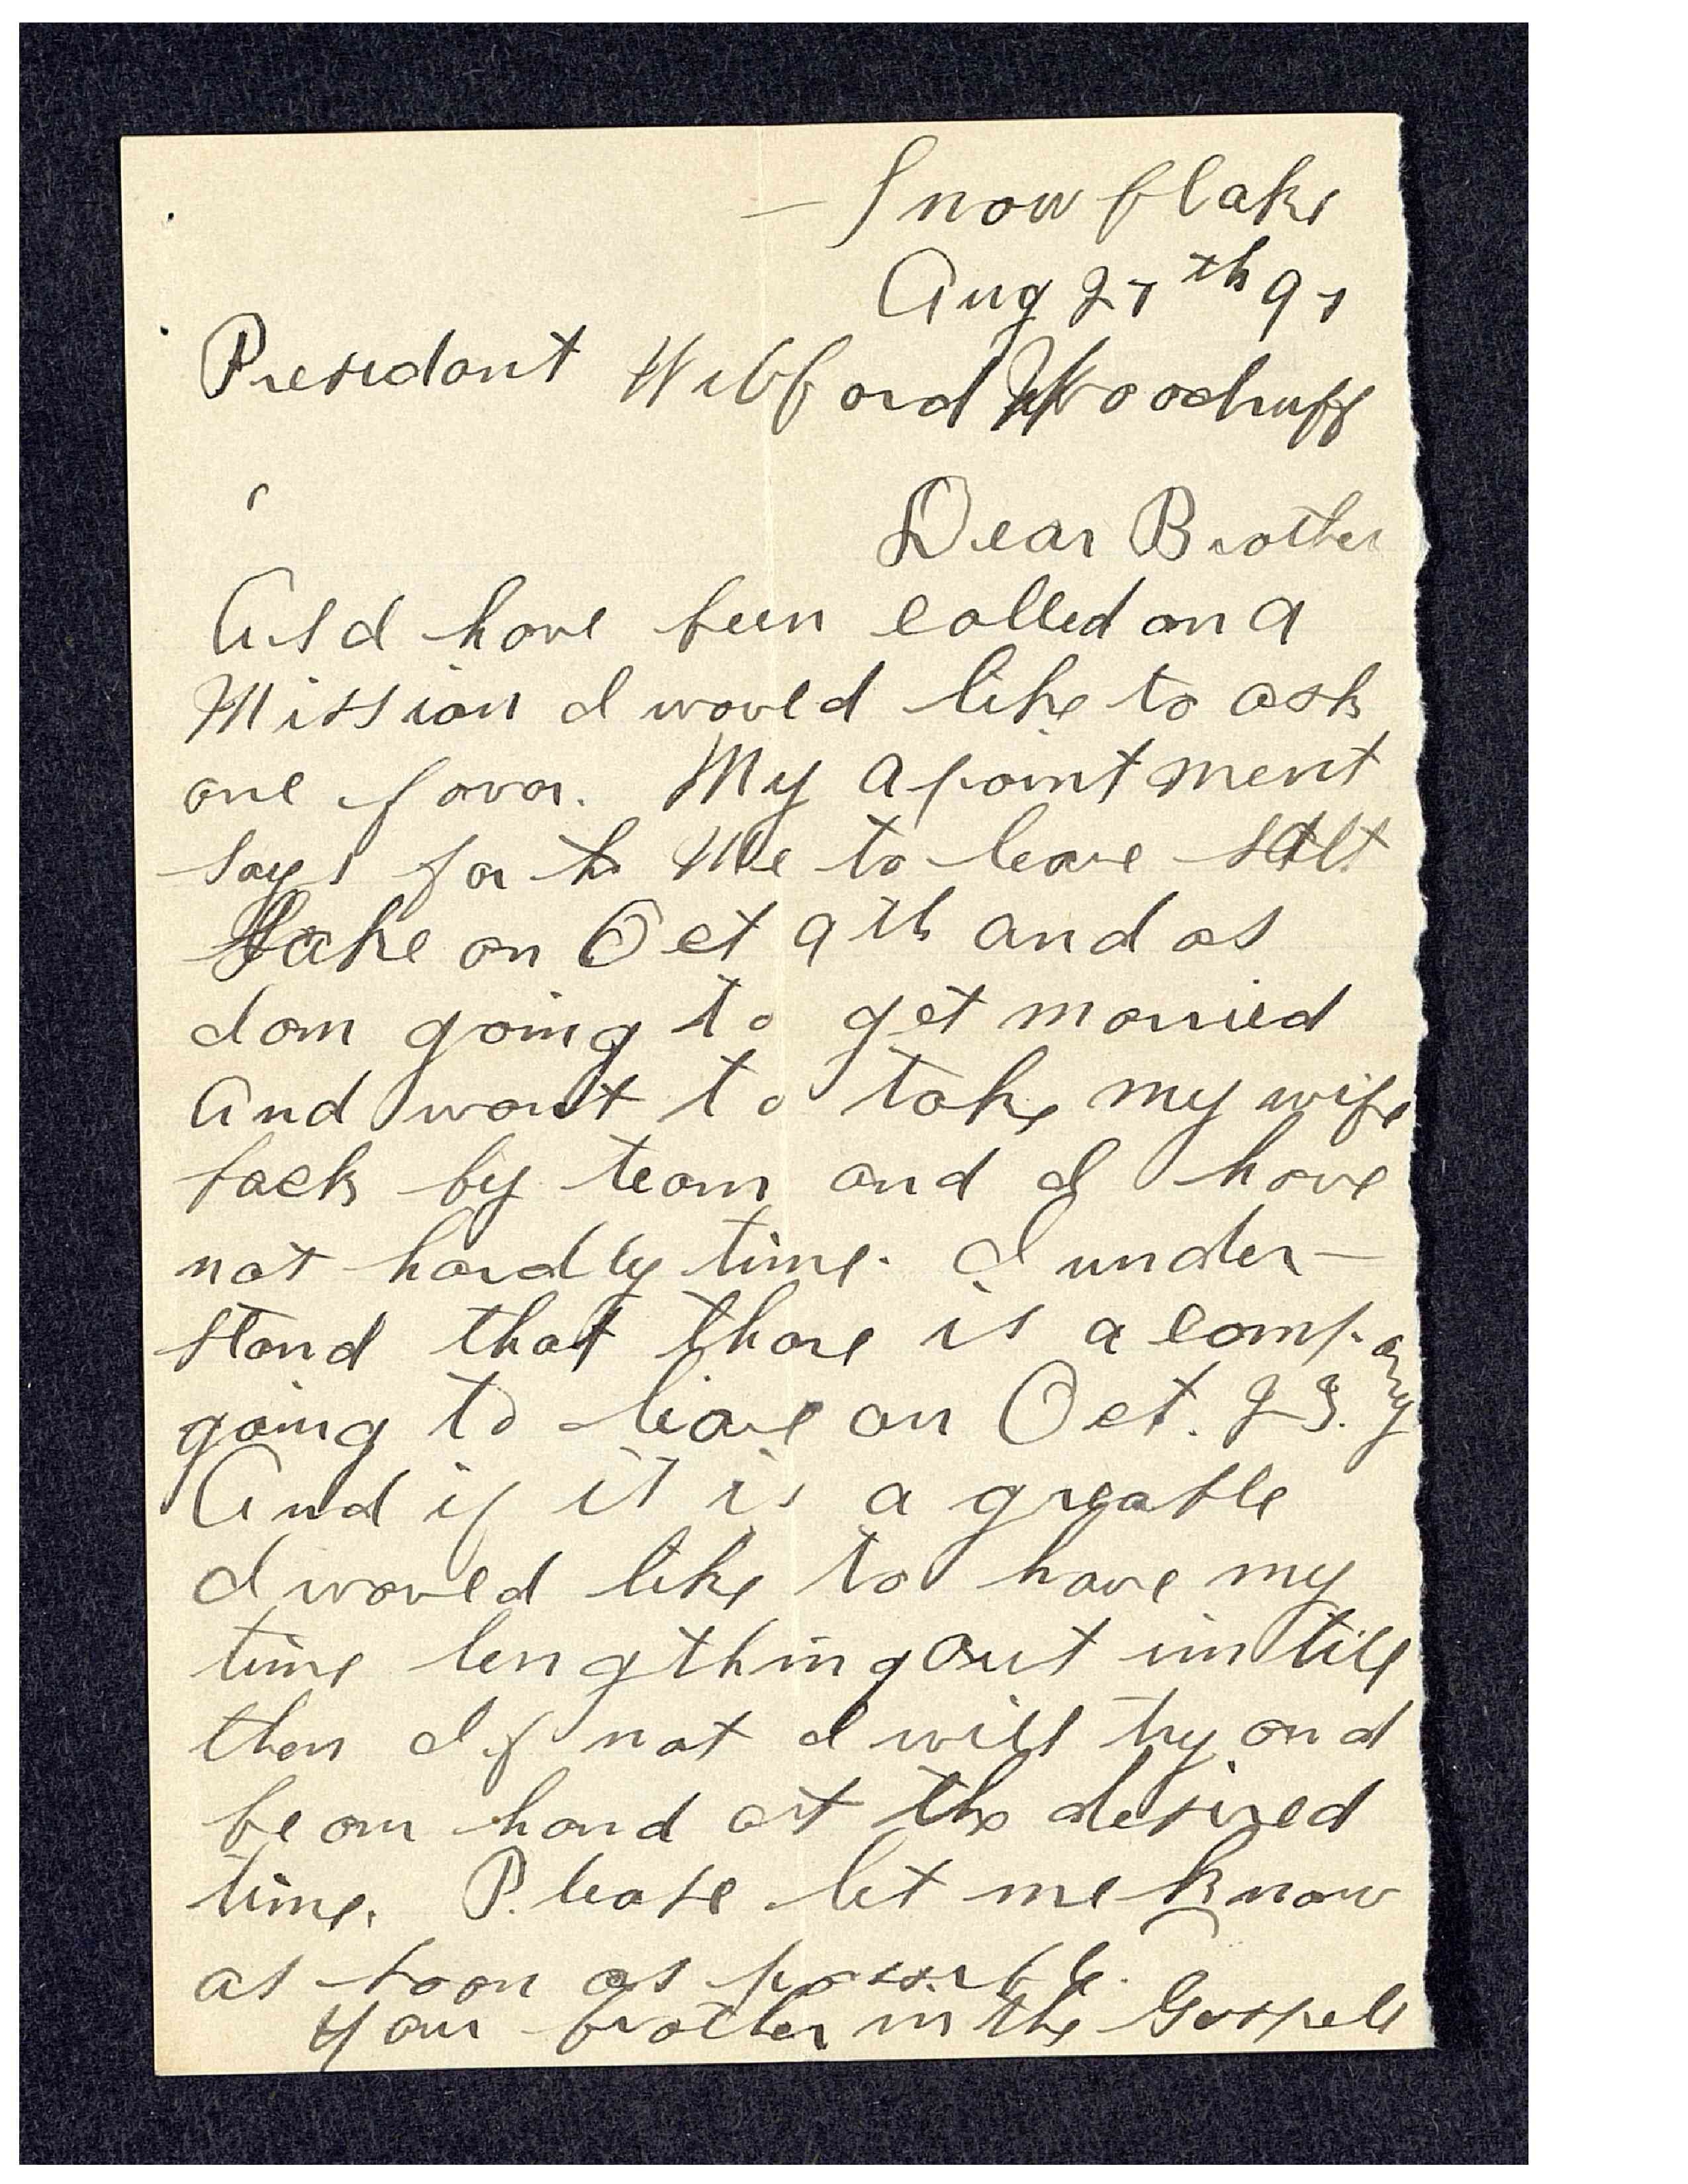 Snowflake
Aug 27th 97
Presidant Willford Woodruff
Dear Brother
As I have been called on a
Mission I would like to ask
one favor. My apointment
says for Me to leave Salt
Lake on Oct 9th and as
I am going to get married
And want to take my wife
back by team and I have
not hardly time. I under-
stand that thare is a company
going to leave on Oct. 23.
And if it is agreable
I would like to have my
time lengthing out untill
then If not I will try and
be on hand at the desired
time. Please let me know
as soon as possible.
Your brother in the Gospell